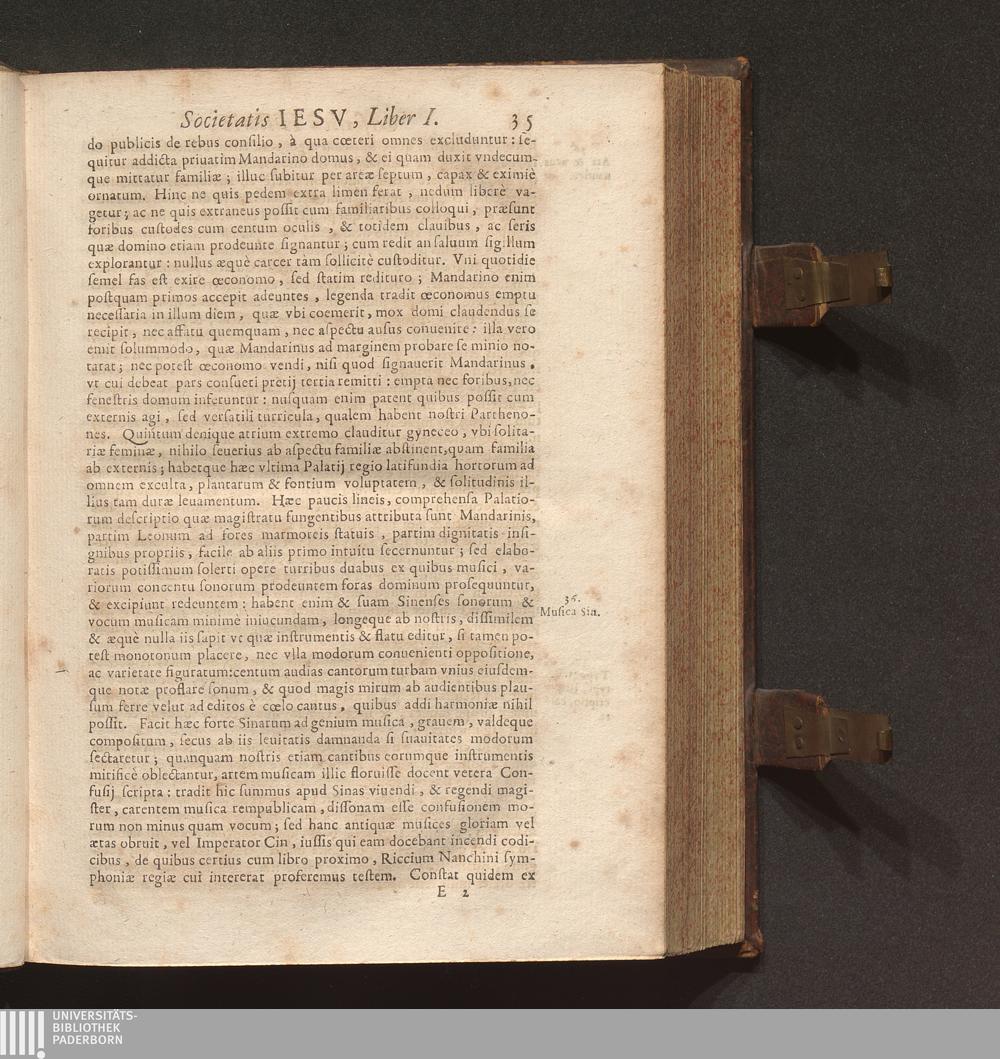 Societatis IESV, Liber I. 35
do publicis de rebus consilio, à qua cœteri omnes excluduntur: se-
quitur addicta priuatim Mandarino domus, & ei quam duxit vndecum-
que mittatur familiæ; illuc subitur per areæ septum, capax & eximiè
ornatum. Hinc ne quis pedem extra limen ferat, nedum liberè va-
getur; ac ne quis extraneus possit cum familiaribus colloqui, præsunt
foribus custodes cum centum oculis, & totidem clauibus, ac seris
quæ domino etiam prodeunte signantur; cum redit an saluum sigillum
explorantur: nullus æquè carcer tàm sollicitè custoditur. Vni quotidie
semel fas est exire œconomo, sed statim redituro; Mandarino enim
postquam primos accepit adeuntes, legenda tradit œconomus emptu
necessaria in illum diem, quæ vbi coemerit, mox domi claudendus se
recipit, nec affatu quemquam, nec aspectu ausus conuenire: illa vero
emit solummodo, quæ Mandarinus ad marginem probare se minio no-
tarat; nec potest œconomo vendi, nisi quod signauerit Mandarinus,
vt cui debeat pars consueti pretij tertia remitti: empta nec foribus, nec
fenestris domum inferuntur: nusquam enim patent quibus possit cum
externis agi, sed versatili turricula, qualem habent nostri Partheno-
nes. Quintum denique atrium extremo clauditur gyneceo, vbi solita-
riæ feminæ, nihilo seuerius ab aspectu familiæ abstinent, quam familia
ab externis; habetque hæc vltima Palatij regio latifundia hortorum ad
omnem exculta, plantarum & fontium voluptatem, & solitudinis il-
lius tam duræ leuamentum. Hæc paucis lineis, comprehensa Palatio-
rum descriptio quæ magistratu fungentibus attributa sunt Mandarinis,
partim Leonum ad fores marmoreis statuis, partim dignitatis insi-
gnibus propriis, facile ab aliis primo intuitu secernuntur; sed elabo-
ratis potissimum solerti opere turribus duabus ex quibus musici, va-
riorum concentu sonorum prodeuntem foras dominum prosequuntur,
& excipiunt redeuntem: habent enim & suam Sinenses sonorum &
36.
Musica Sin.
vocum musicam minimè iniucundam, longeque ab nostris, dissimilem
& æquè nulla iis sapit vt quæ instrumentis & flatu editur, si tamen po-
test monotonum placere, nec vlla modorum conuenienti oppositione,
ac varietate figuratum: centum audias cantorum turbam vnius eiusdem-
que notæ proflare sonum, & quod magis mirum ab audientibus plau-
sum ferre velut ad editos è cœlo cantus, quibus addi harmoniæ nihil
possit. Facit hæc forte Sinarum ad genium musica, grauem, valdeque
compositum, secus ab iis leuitatis damnanda si suauitates modorum
sectaretur; quanquam nostris etiam cantibus eorumque instrumentis
mirificè oblectantur, artem musicam illic floruisse docent vetera Con-
fusij scripta: tradit hic summus apud Sinas viuendi, & regendi magi-
ster, carentem musica rempublicam, dissonam esse confusionem mo-
rum non minus quam vocum; sed hanc antiquæ musices gloriam vel
ætas obruit, vel Imperator Cin, iussis qui eam docebant incendi codi-
cibus, de quibus certius cum libro proximo, Riccium Nanchini sym-
phoniæ regiæ cui intererat proferemus testem. Constat quidem ex
E 2
UNIVERSITÄTS-
BIBLIOTHEK
PADERBORN